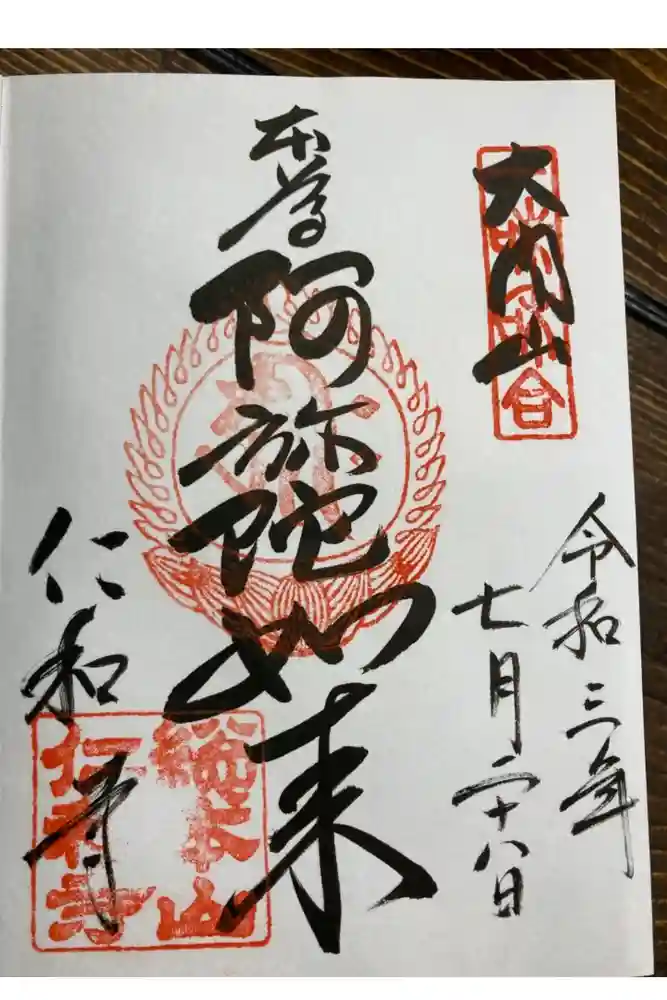 大内山
令和三年
七月二十八日
本尊
阿弥陀如来
仁和寺
総本山
仁和寺